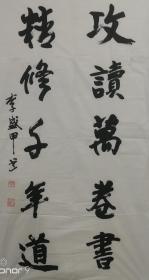 攻讀萬卷書
精修千年道
李盛甲书
HONOR